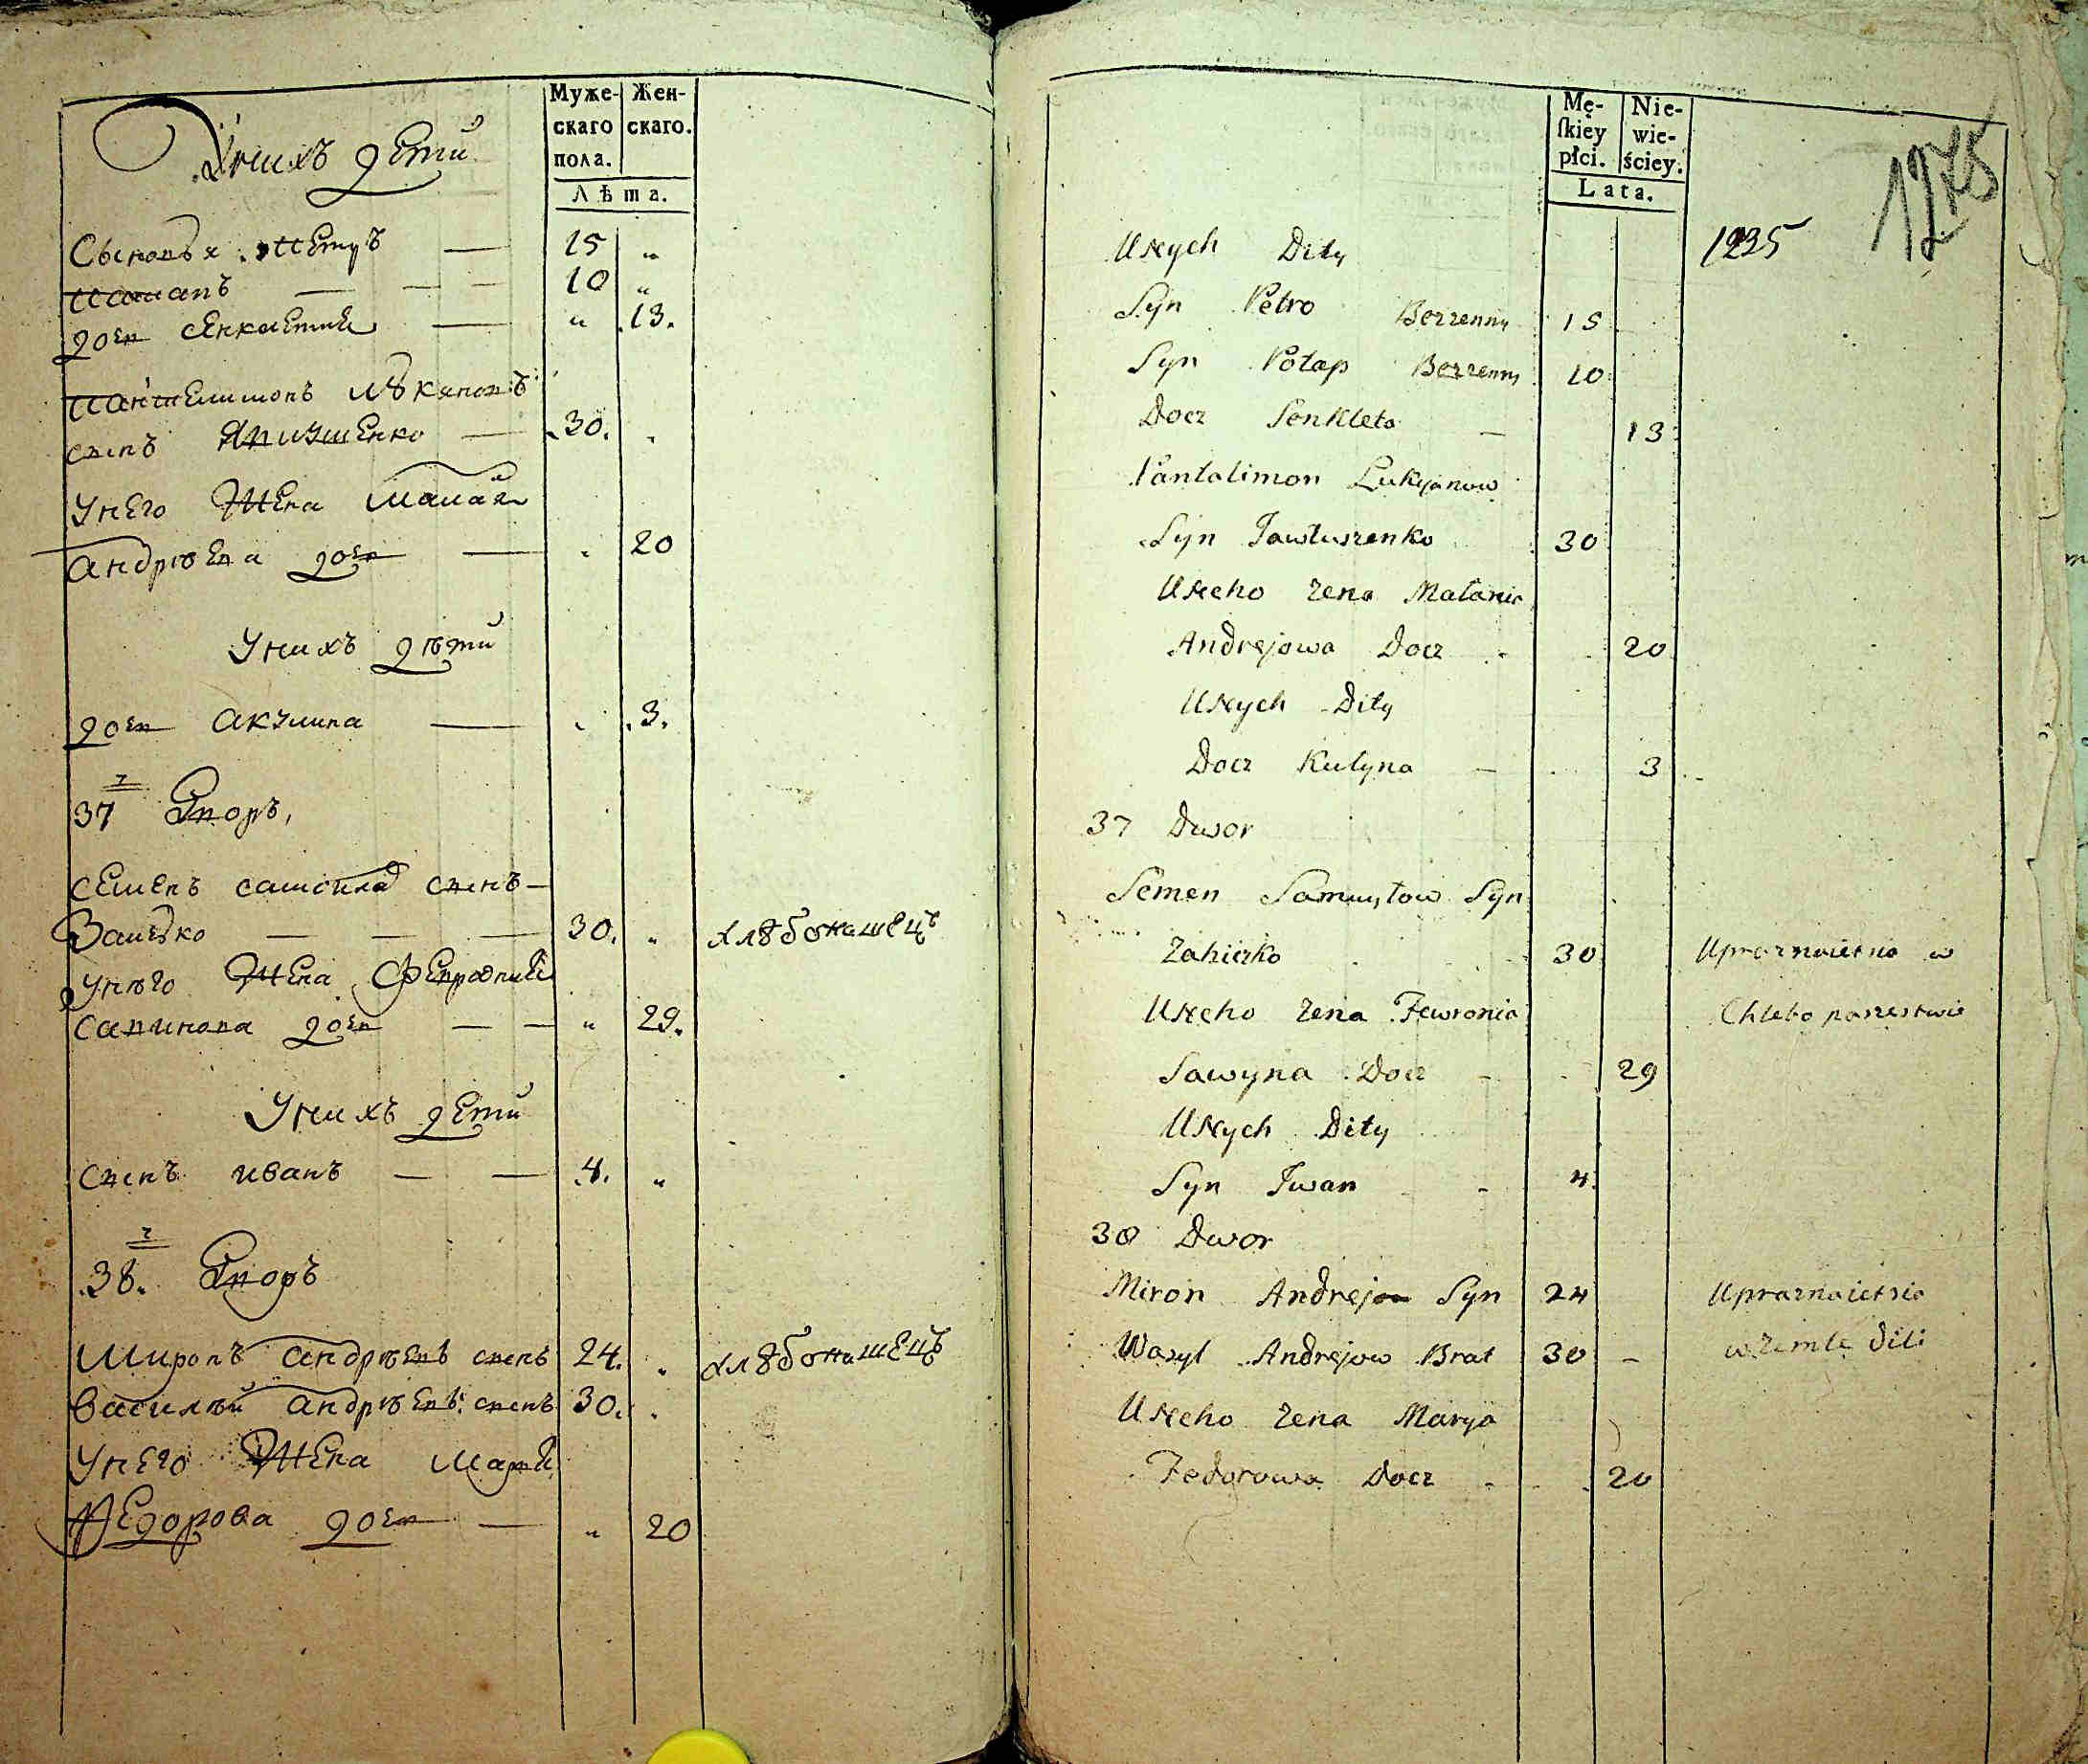 Муже-
скаго
пола.
Жен-
скаго.
Лѣта.
Унихъ дети
Сыновья Петръ — 15 „
Потапъ — — — 10 „
дочь Сенклетия — „ 13.
Пантелимонъ Лукяновъ
сынъ Явтушенко — 30. „
Унего Жена Малания
Андрѣева дочь — „ 20
Унихъ дѣти
дочь Акулина — „ 3.
37 й Дворъ,
Семенъ Самойловъ сынъ —
— — — 30. „ хлѣбопашецъ
Унего Жена Феврония
Савинова дочь — — „ 29.
Унихъ дети
сынъ иванъ — — 4. „
38. й Дворъ
Миронъ Андрѣевъ сынъ 24. „ хлѣбопашецъ
Василий Андрѣевъ сынъ 30. „
Унего Жена Мария
Федорова дочь — „ 20
Mę-
ſkiey
płci.
Nie-
wie-
ściey.
Lata.
1275
1235
UNych Dity
Syn Petro 15
Syn Potap 10
Docz Senkleta — 13
Pantalimon Lukyanow
Syn Jawtuszenko 30
UNeho Zena Małania
Andrejowa Docz - 20
UNych Dity
Docz Kulyna — 3
37 Dwor
Semen Samuyłow Syn
30 Upraznaietsia w
UNeho Zena Fewronia Chlebo paszestwie
Sawyna Docz - 29
UNych Dity
Syn Jwan - 4
38 Dwor
Miron Andrejow Syn 24 Upraznaietsia
Wasyl Andrejow Brat 30 - w Zemle dili
UNeho Zena Marya
Fedorowa Docz - 20